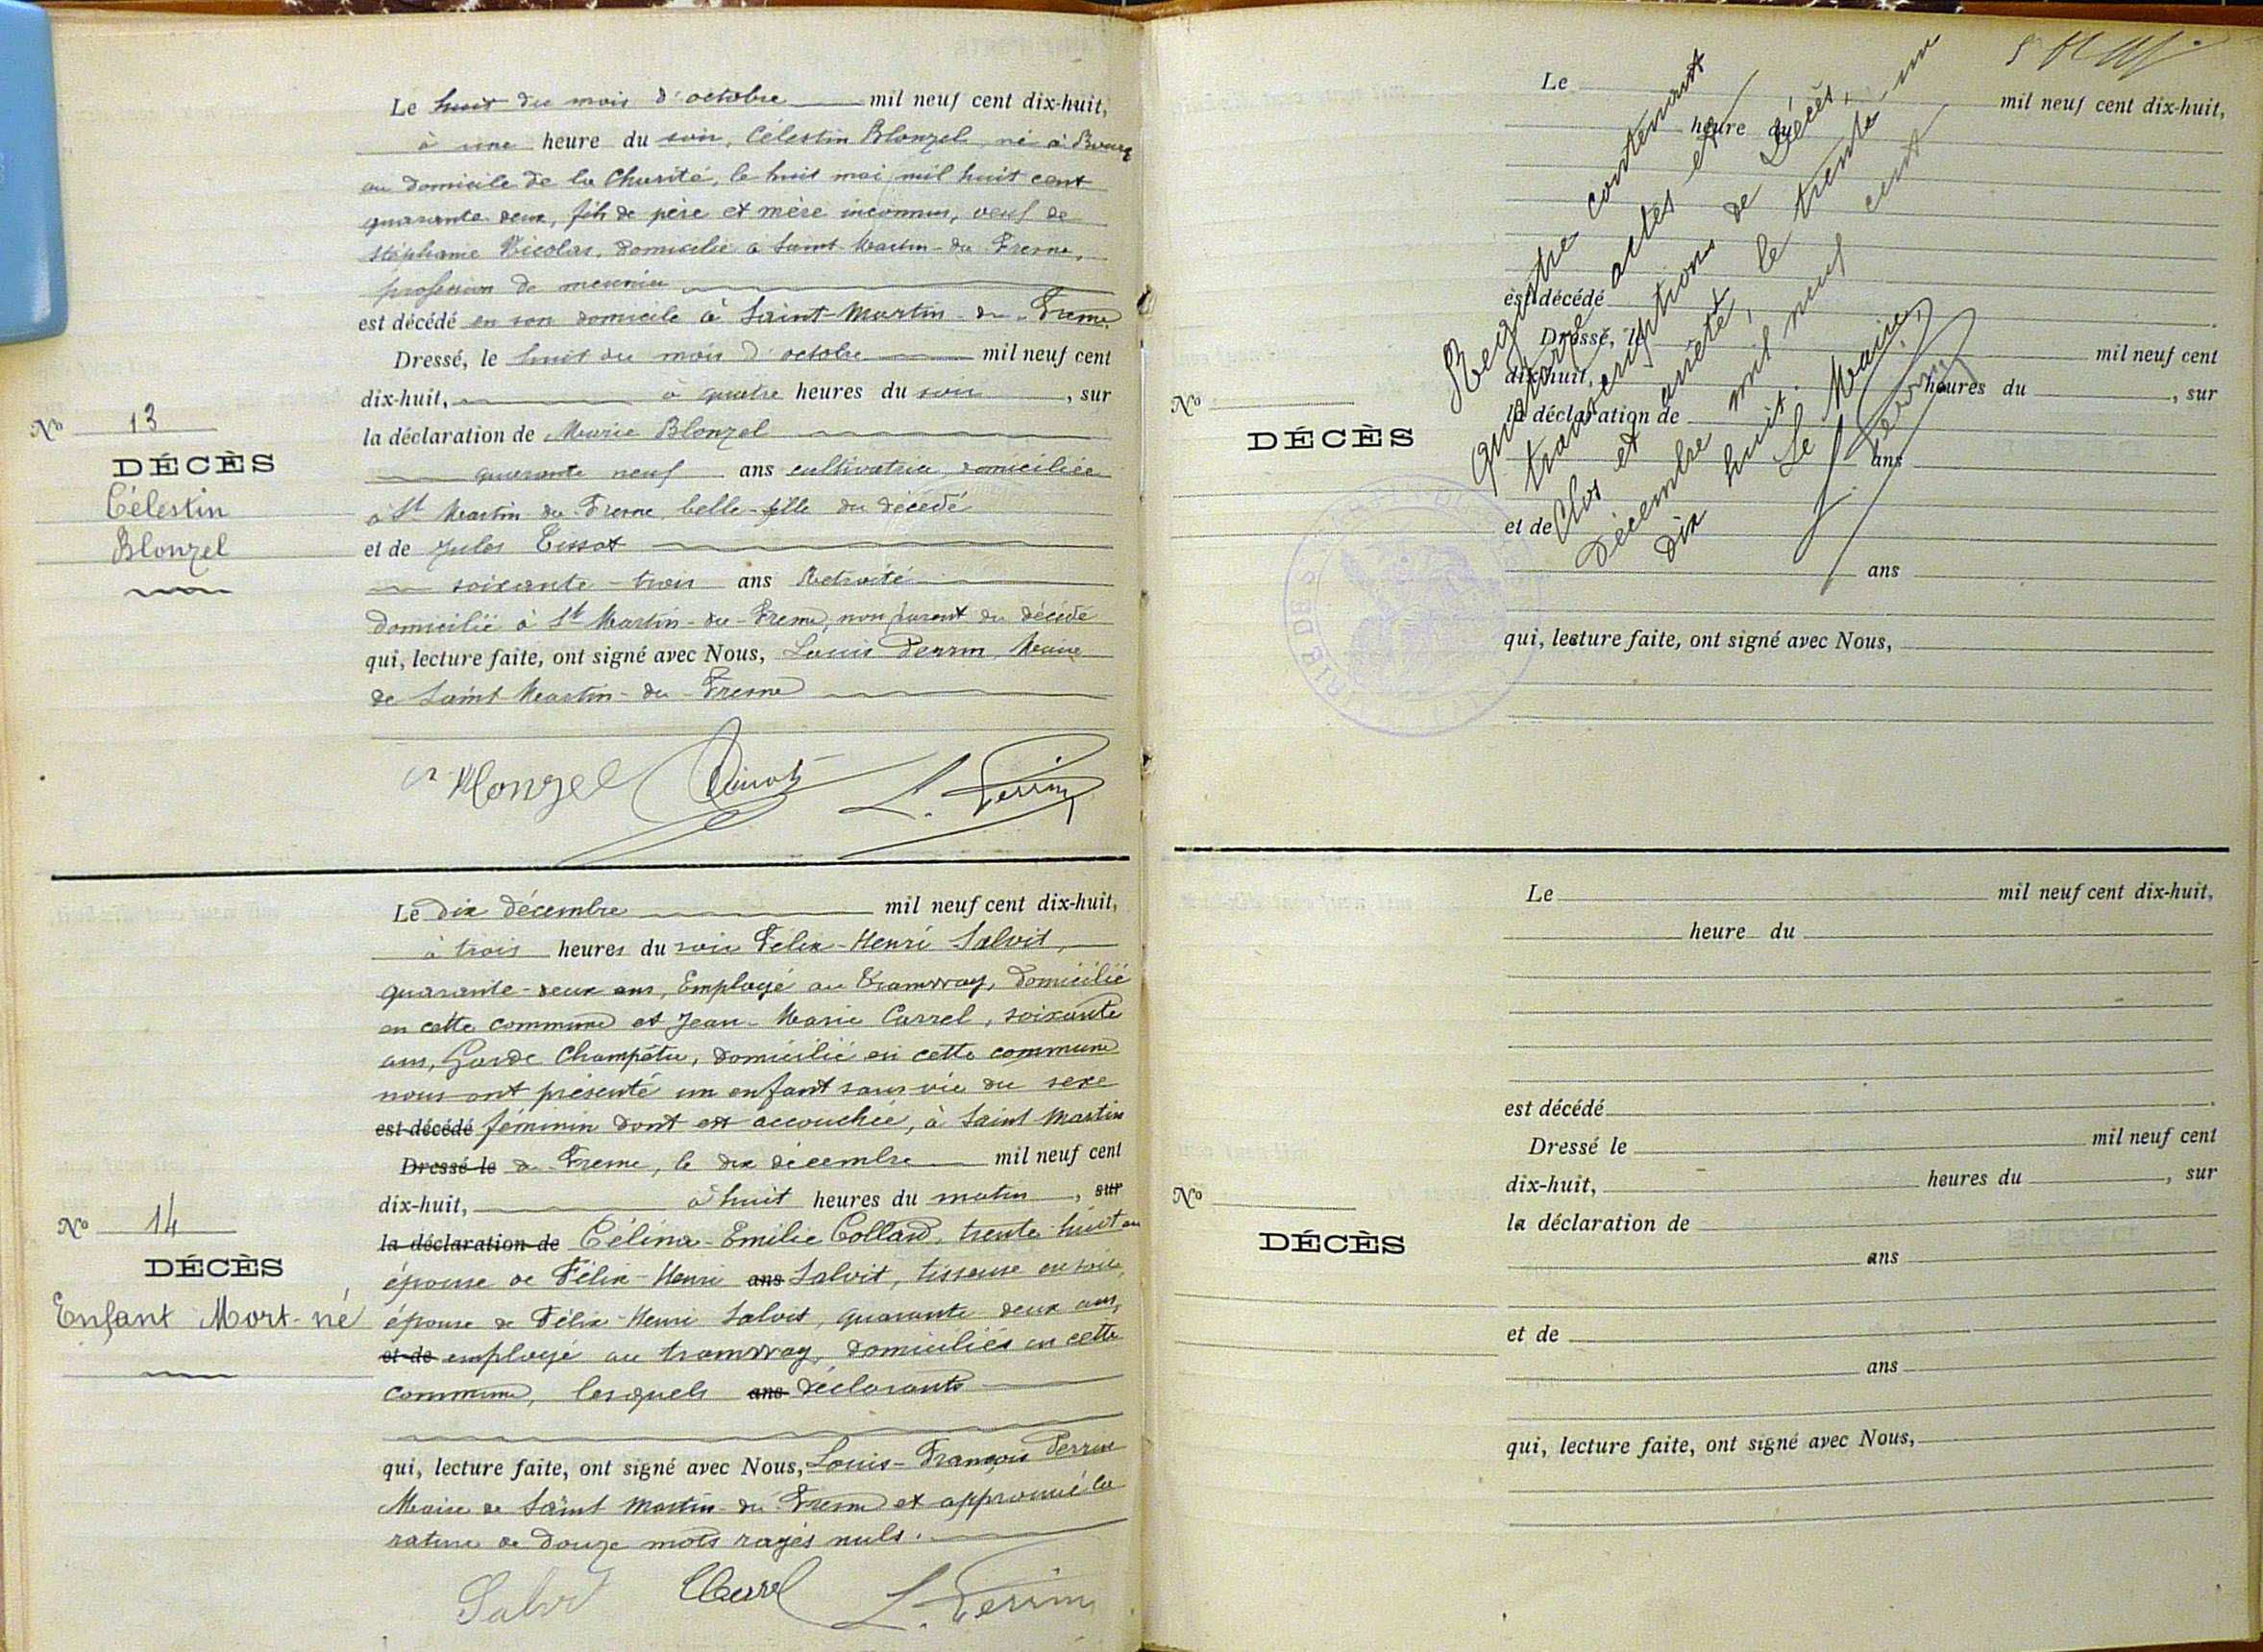 Le huit du mois d'octobre mil neuf cent dix-huit,
à une heure du soir, Célestin Blonzel, né à Bourg
au domicile de la Charité, le huit mai mil huit cent
quarante deux, fils de père et mère inconnus, veuf de
Stéphanie Nicolas, domicilié à Saint-Martin-du-Fresne,
profession de meunier
est décédé en son domicile à Saint-Martin-du-Fresne.
Dressé, le huit du mois d'octobre mil neuf cent
dix-huit, à quatre heures du soir, sur
la déclaration de Marie Blonzel
quarante neuf ans cultivatrice, domiciliée
à St Martin du Fresne, belle-fille du décédé
et de Jules Tissot
soixante-trois ans Retraité
domicilié à St Martin-du-Fresne, non parent du décédé
qui, lecture faite, ont signé avec Nous, Louis Perrin, Maire
de Saint Martin-du-Fresne
No 13
DÉCÈS
Célestin
Blonzel
Blonzel L. Perrin
Le dix décembre mil neuf cent dix-huit,
à trois heures du soir Félix-Henri Salvit,
quarante-deux ans, Employé au Tramway, domicilié
en cette commune et Jean-Marie Carrel, soixante
ans, Garde Champêtre, domicilié en cette commune
nous ont présenté un enfant sans vie du sexe
est décédé féminin dont est accouchée, à Saint Martin
Dressé le du Fresne, le dix décembre mil neuf cent
dix-huit, à huit heures du matin, sur
la déclaration de Célina-Emilie Collard, trente huit ans
épouse de Félix-Henri ans Salvit, tisseuse en soie,
épouse de Félix-Henri Salvit, quarante deux ans,
et de employé au tramway, domiciliés en cette
commune, lesquels ans déclarants
qui, lecture faite, ont signé avec Nous, Louis-François Perrin
Maire de Saint Martin-du-Fresne et approuvé la
rature de douze mots rayés nuls.
No 14
DÉCÈS
Enfant Mort-né
Salvit Carrel L. Perrin
Le mil neuf cent dix-huit,
heure du
est décédé
Dressé, le mil neuf cent
dix-huit, heures du , sur
la déclaration de
ans
et de
ans
qui, lecture faite, ont signé avec Nous,
No
DÉCÈS
Registre contenant
quatorze actes et
transcriptions de Décès,
Clos et arrêté, le trente un
Décembre mil neuf cent
dix huit.
Le Maire,
L. Perrin
Le mil neuf cent dix-huit,
heure du
est décédé
Dressé le mil neuf cent
dix-huit, heures du , sur
la déclaration de
ans
et de
ans
qui, lecture faite, ont signé avec Nous,
No
DÉCÈS